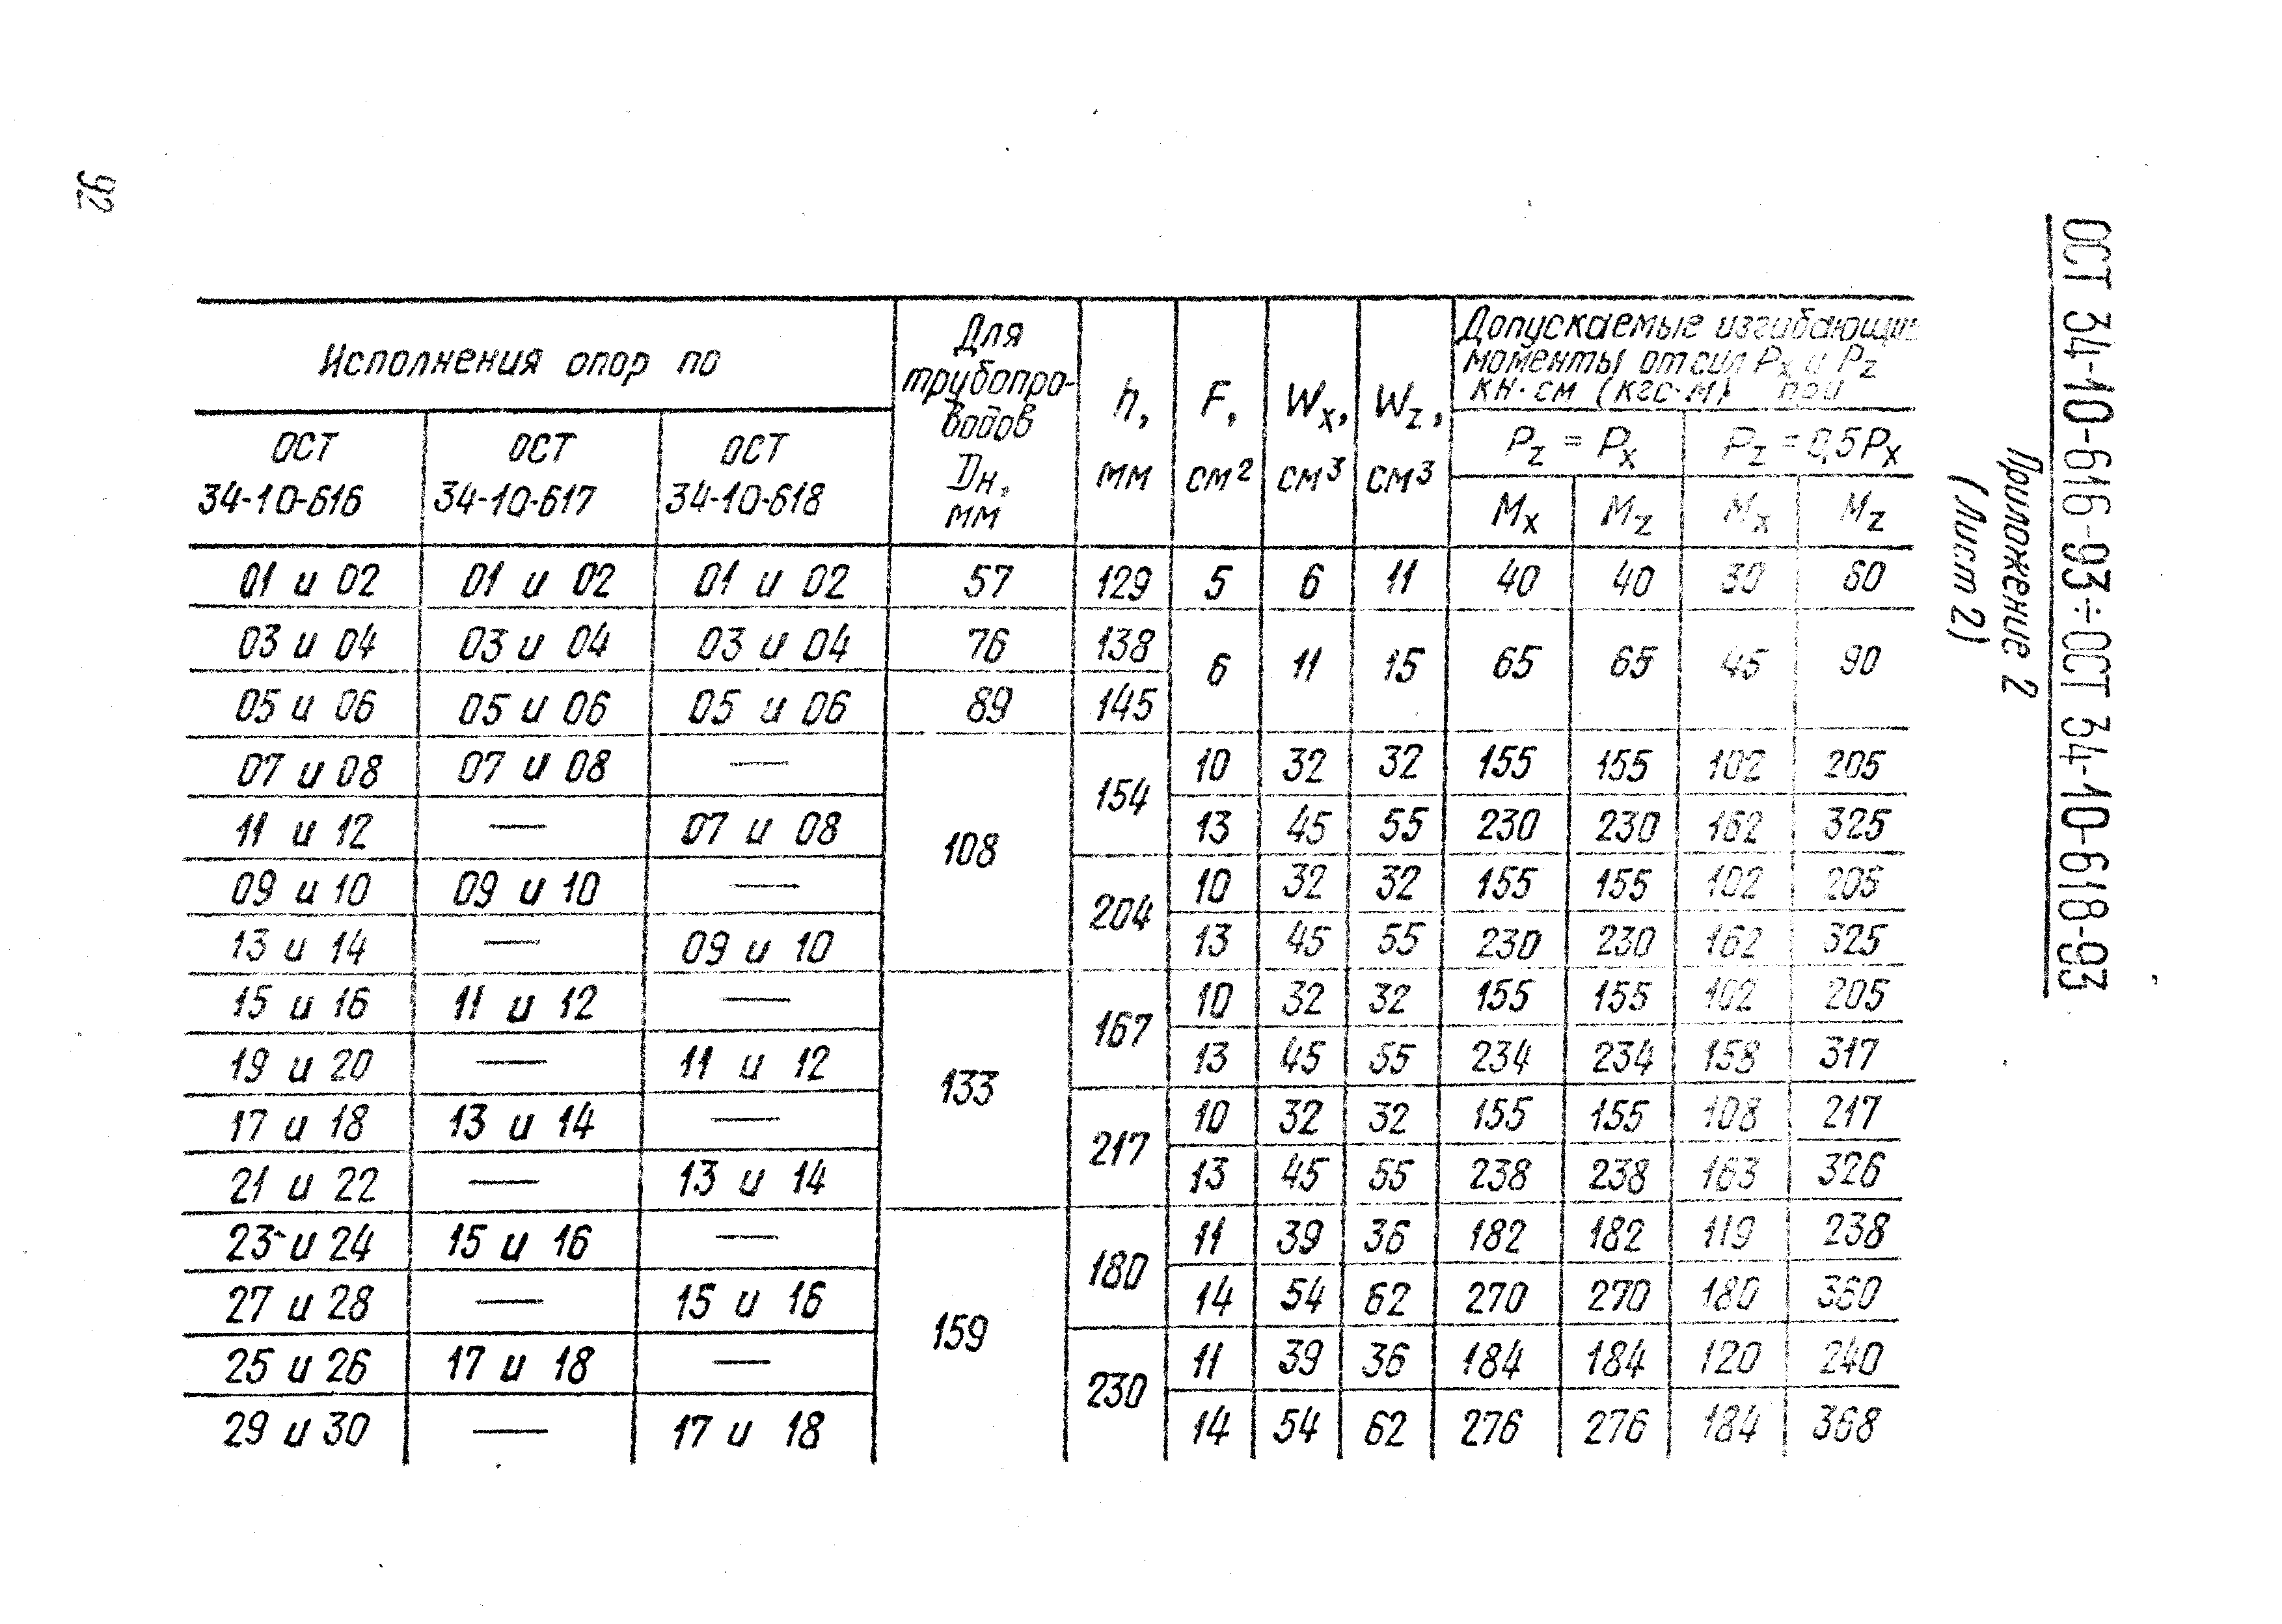 92
ОСТ 34-10-616-93÷ОСТ 34-10-618-93
Приложение 2
(Лист 2)
Исполнения опор по
ОСТ 34-10-616
ОСТ 34-10-617
ОСТ 34-10-618
Для трубопро-
водов
Dн,
мм
h,
мм
F,
см²
Wx,
см³
Wz,
см³
Допускаемые изгибающие
моменты от сил Px и Pz
кН·см (кгс·м) при
Pz = Px
Pz = 0,5Px
Mx Mz Mx Mz
01 и 02 01 и 02 01 и 02 57 129 5 6 11 40 40 30 60
03 и 04 03 и 04 03 и 04 76 138 6 11 15 65 65 45 90
05 и 06 05 и 06 05 и 06 89 145
07 и 08 07 и 08 — 108 154 10 32 32 155 155 102 205
11 и 12 — 07 и 08 13 45 55 230 230 162 325
09 и 10 09 и 10 — 204 10 32 32 155 155 102 205
13 и 14 — 09 и 10 13 45 55 230 230 162 325
15 и 16 11 и 12 — 133 167 10 32 32 155 155 102 205
19 и 20 — 11 и 12 13 45 55 234 234 158 317
17 и 18 13 и 14 — 217 10 32 32 155 155 108 217
21 и 22 — 13 и 14 13 45 55 238 238 163 326
23 и 24 15 и 16 — 159 180 11 39 36 182 182 119 238
27 и 28 — 15 и 16 14 54 62 270 270 180 360
25 и 26 17 и 18 — 230 11 39 36 184 184 120 240
29 и 30 — 17 и 18 14 54 62 276 276 184 368